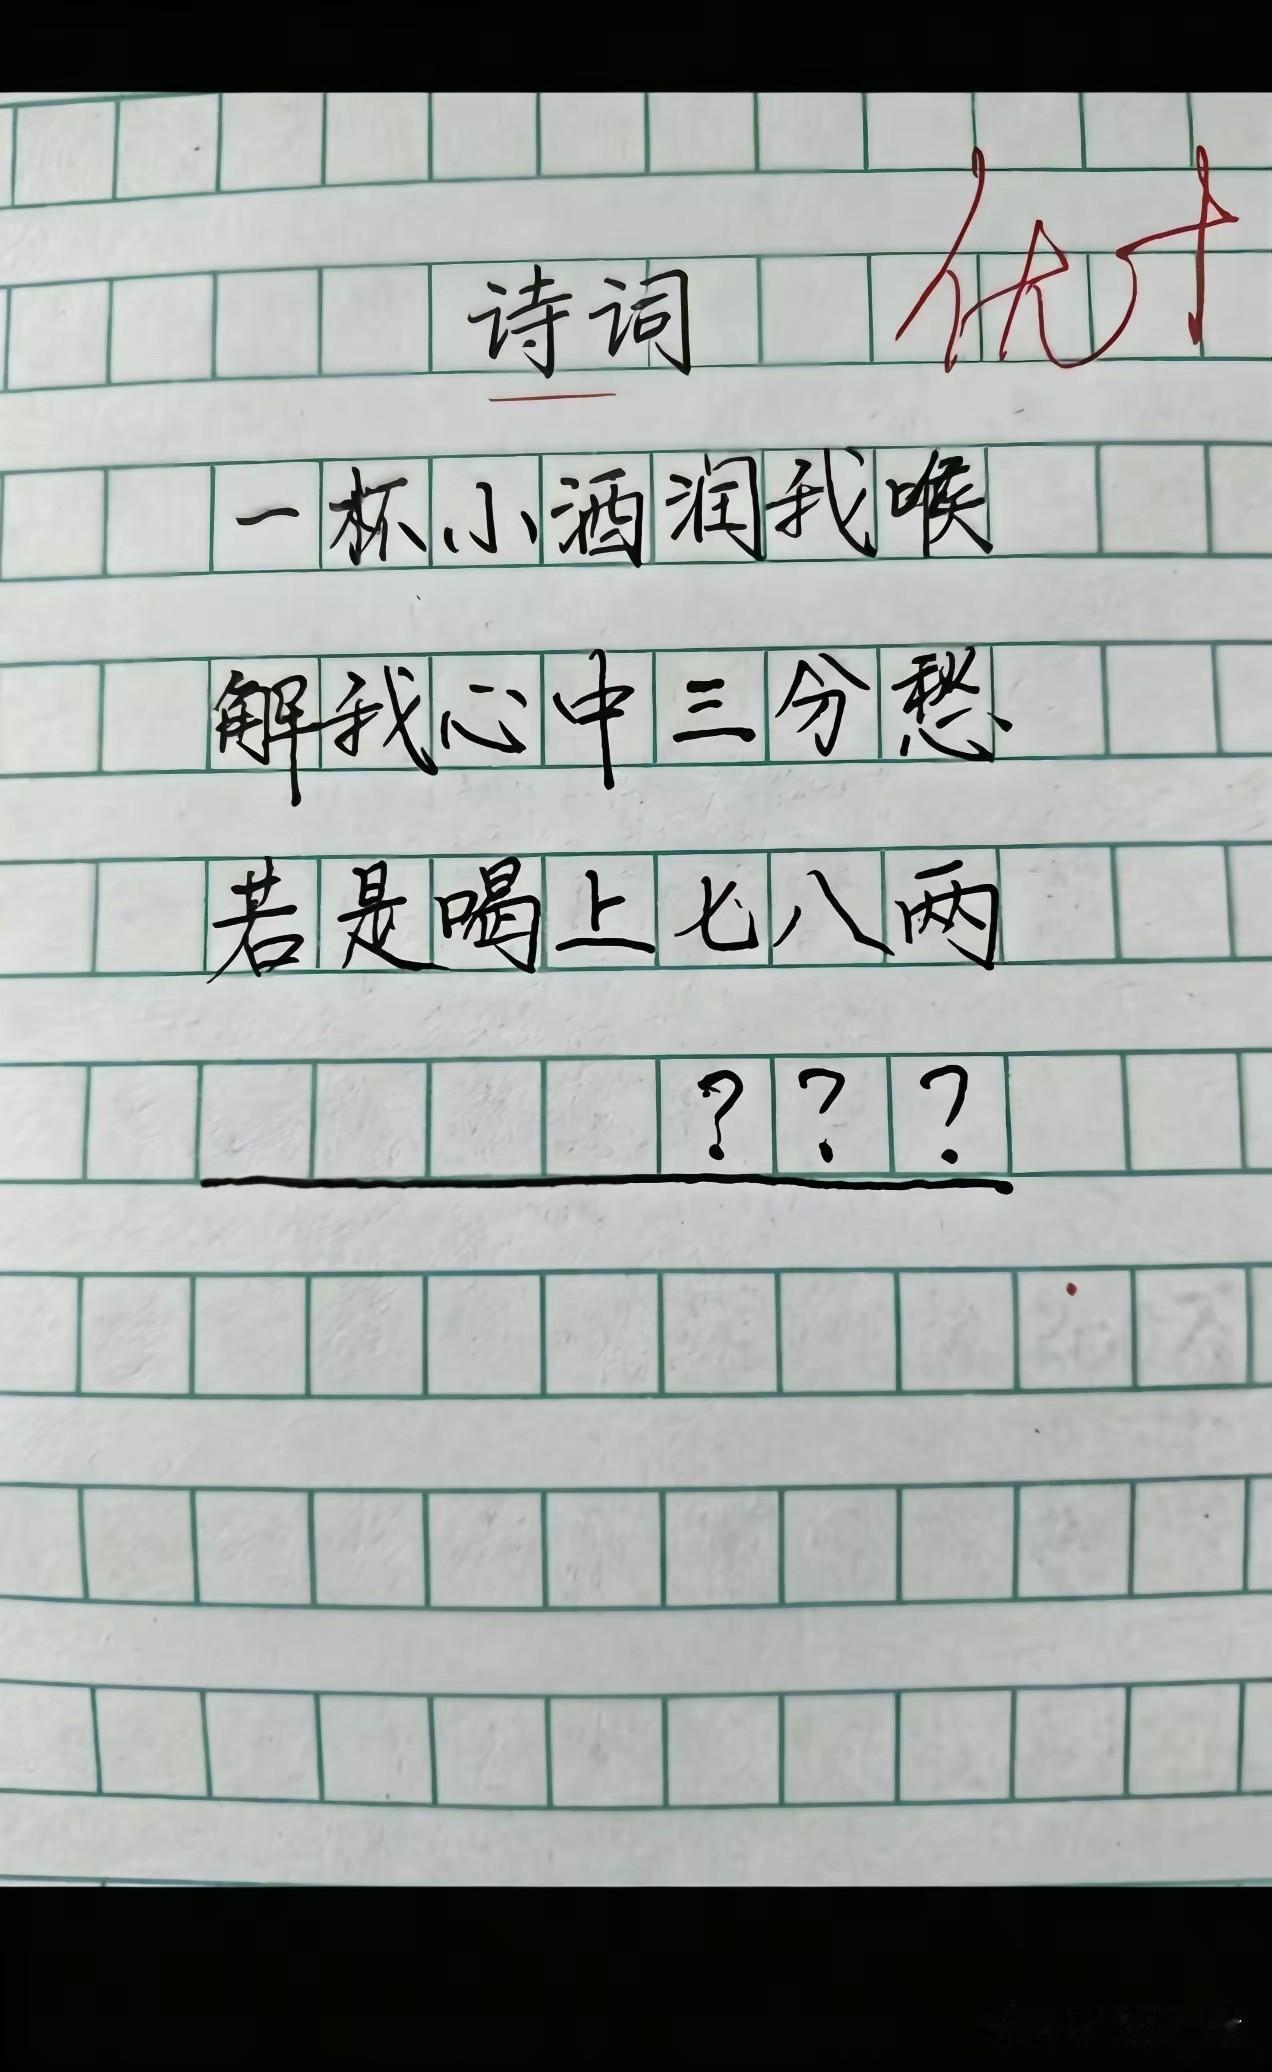 优+
诗词
一杯小酒润我喉
解我心中三分愁
若是喝上七八两
???